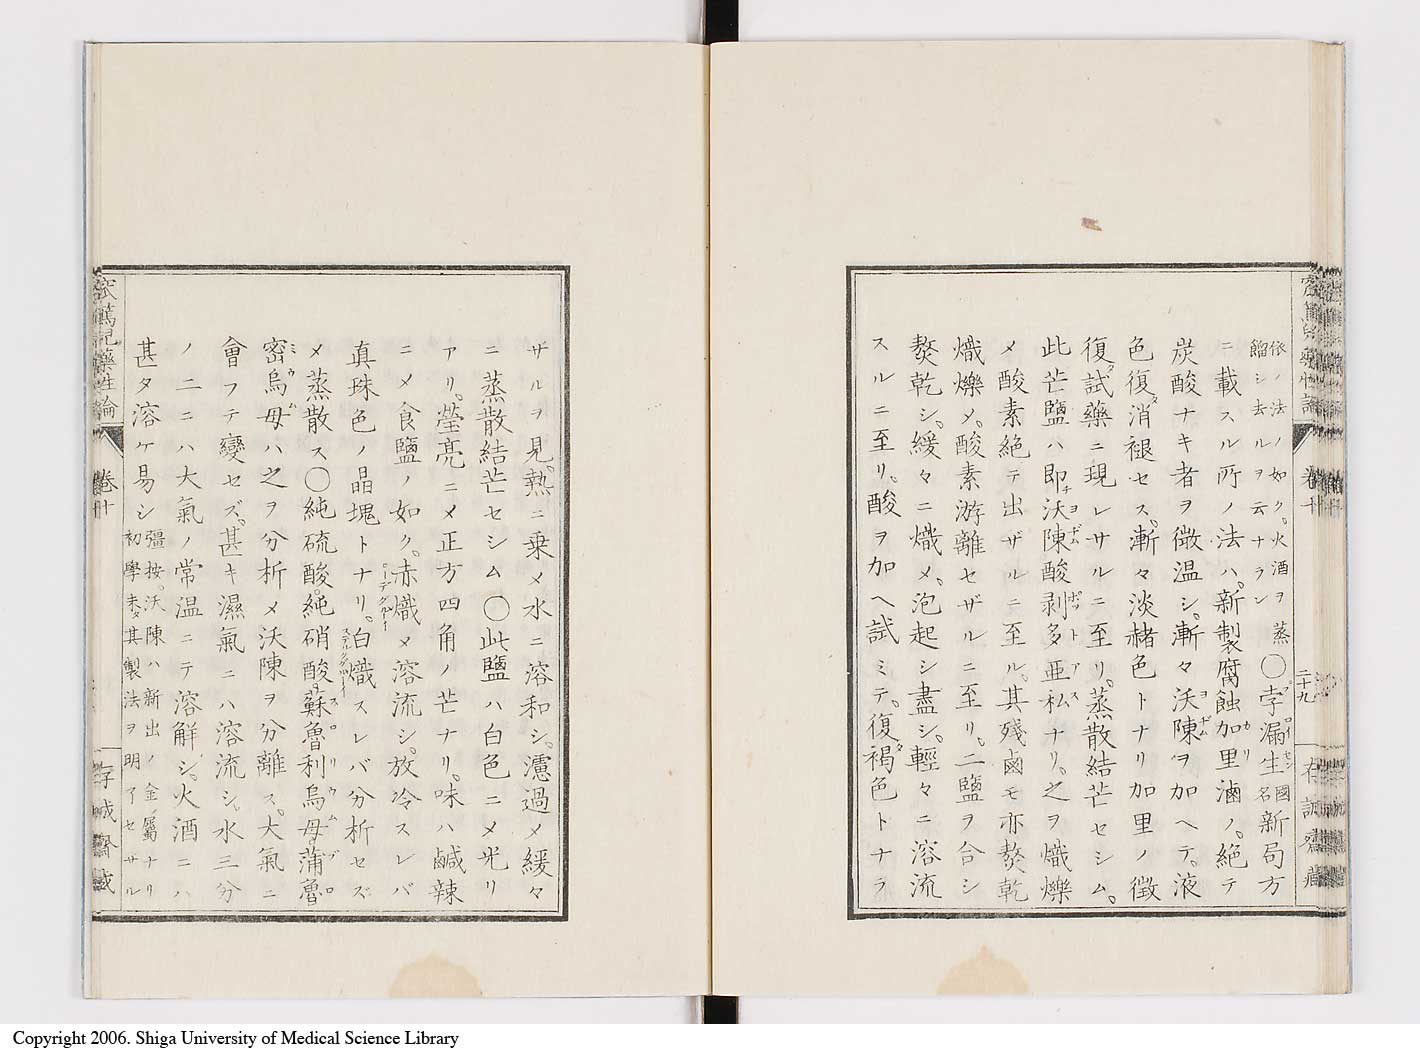 依ノ法ノ如ク。火酒ヲ蒸
餾シ去ルヲ云ナラン
〇孛漏生國名新局方
ニ載スル所ノ法ハ、新製腐蝕加里滷ノ。絶テ
炭酸ナキ者ヲ微温シ。漸々沃陳ヲ加ヘテ。液
色復消褪セス。漸々淡赭色トナリ加里ノ徴
復試藥ニ現レサルニ至リ。蒸散結芒セシム。
此芒鹽ハ即沃陳酸剥多亜私ナリ。之ヲ熾爍
メ酸素絶テ出ザルニ至ル。其殘鹵モ亦熬乾
熾爍メ。酸素游離セザルニ至リ。二鹽ヲ合シ
熬乾シ。緩々ニ熾メ、泡起シ盡シ。輕々ニ溶流
スルニ至リ。酸ヲ加ヘ試ミテ。復褐色トナラ
巻十
二十九
存誠齋藏
ザルヲ見。熱ニ乗メ水ニ溶和シ。濾過メ緩々
ニ蒸散結芒セシム〇此鹽ハ白色ニメ光リ
アリ。瑩亮ニメ正方四角ノ芒ナリ。味ハ鹹辣
ニメ食鹽ノ如ク。赤熾メ溶流シ。放冷スレバ
真珠色ノ晶塊トナリ。白熾スレバ分析セズ
メ蒸散ス〇純硫酸。純硝酸。蘇魯利烏母。蒲魯
密烏母ハ之ヲ分析メ沃陳ヲ分離ス。大氣ニ
會フテ變セズ。甚キ濕氣ニハ溶流シ。水三分
ノ二ニハ大氣ノ常温ニテ溶解シ。火酒ニハ
甚タ溶ケ易シ
彊按。沃陳ハ新出ノ金屬ナリ
初學未タ其製法ヲ明了セサル
窊篤児藥性論
巻十
存誠齋藏